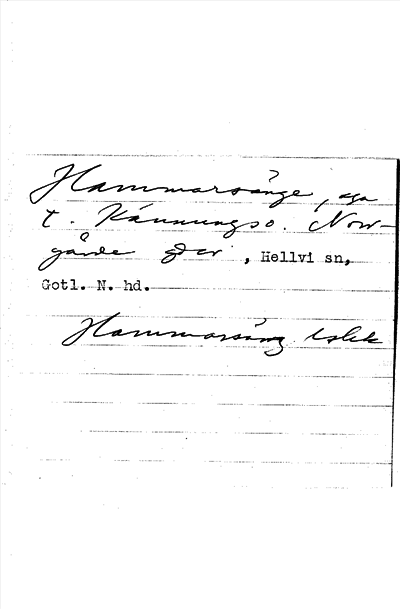 Hammarsänge, äga
t. Kännungs o. Norr-
gårde gdar, Hellvi sn,
Gotl. N. hd.
Hammarsäng